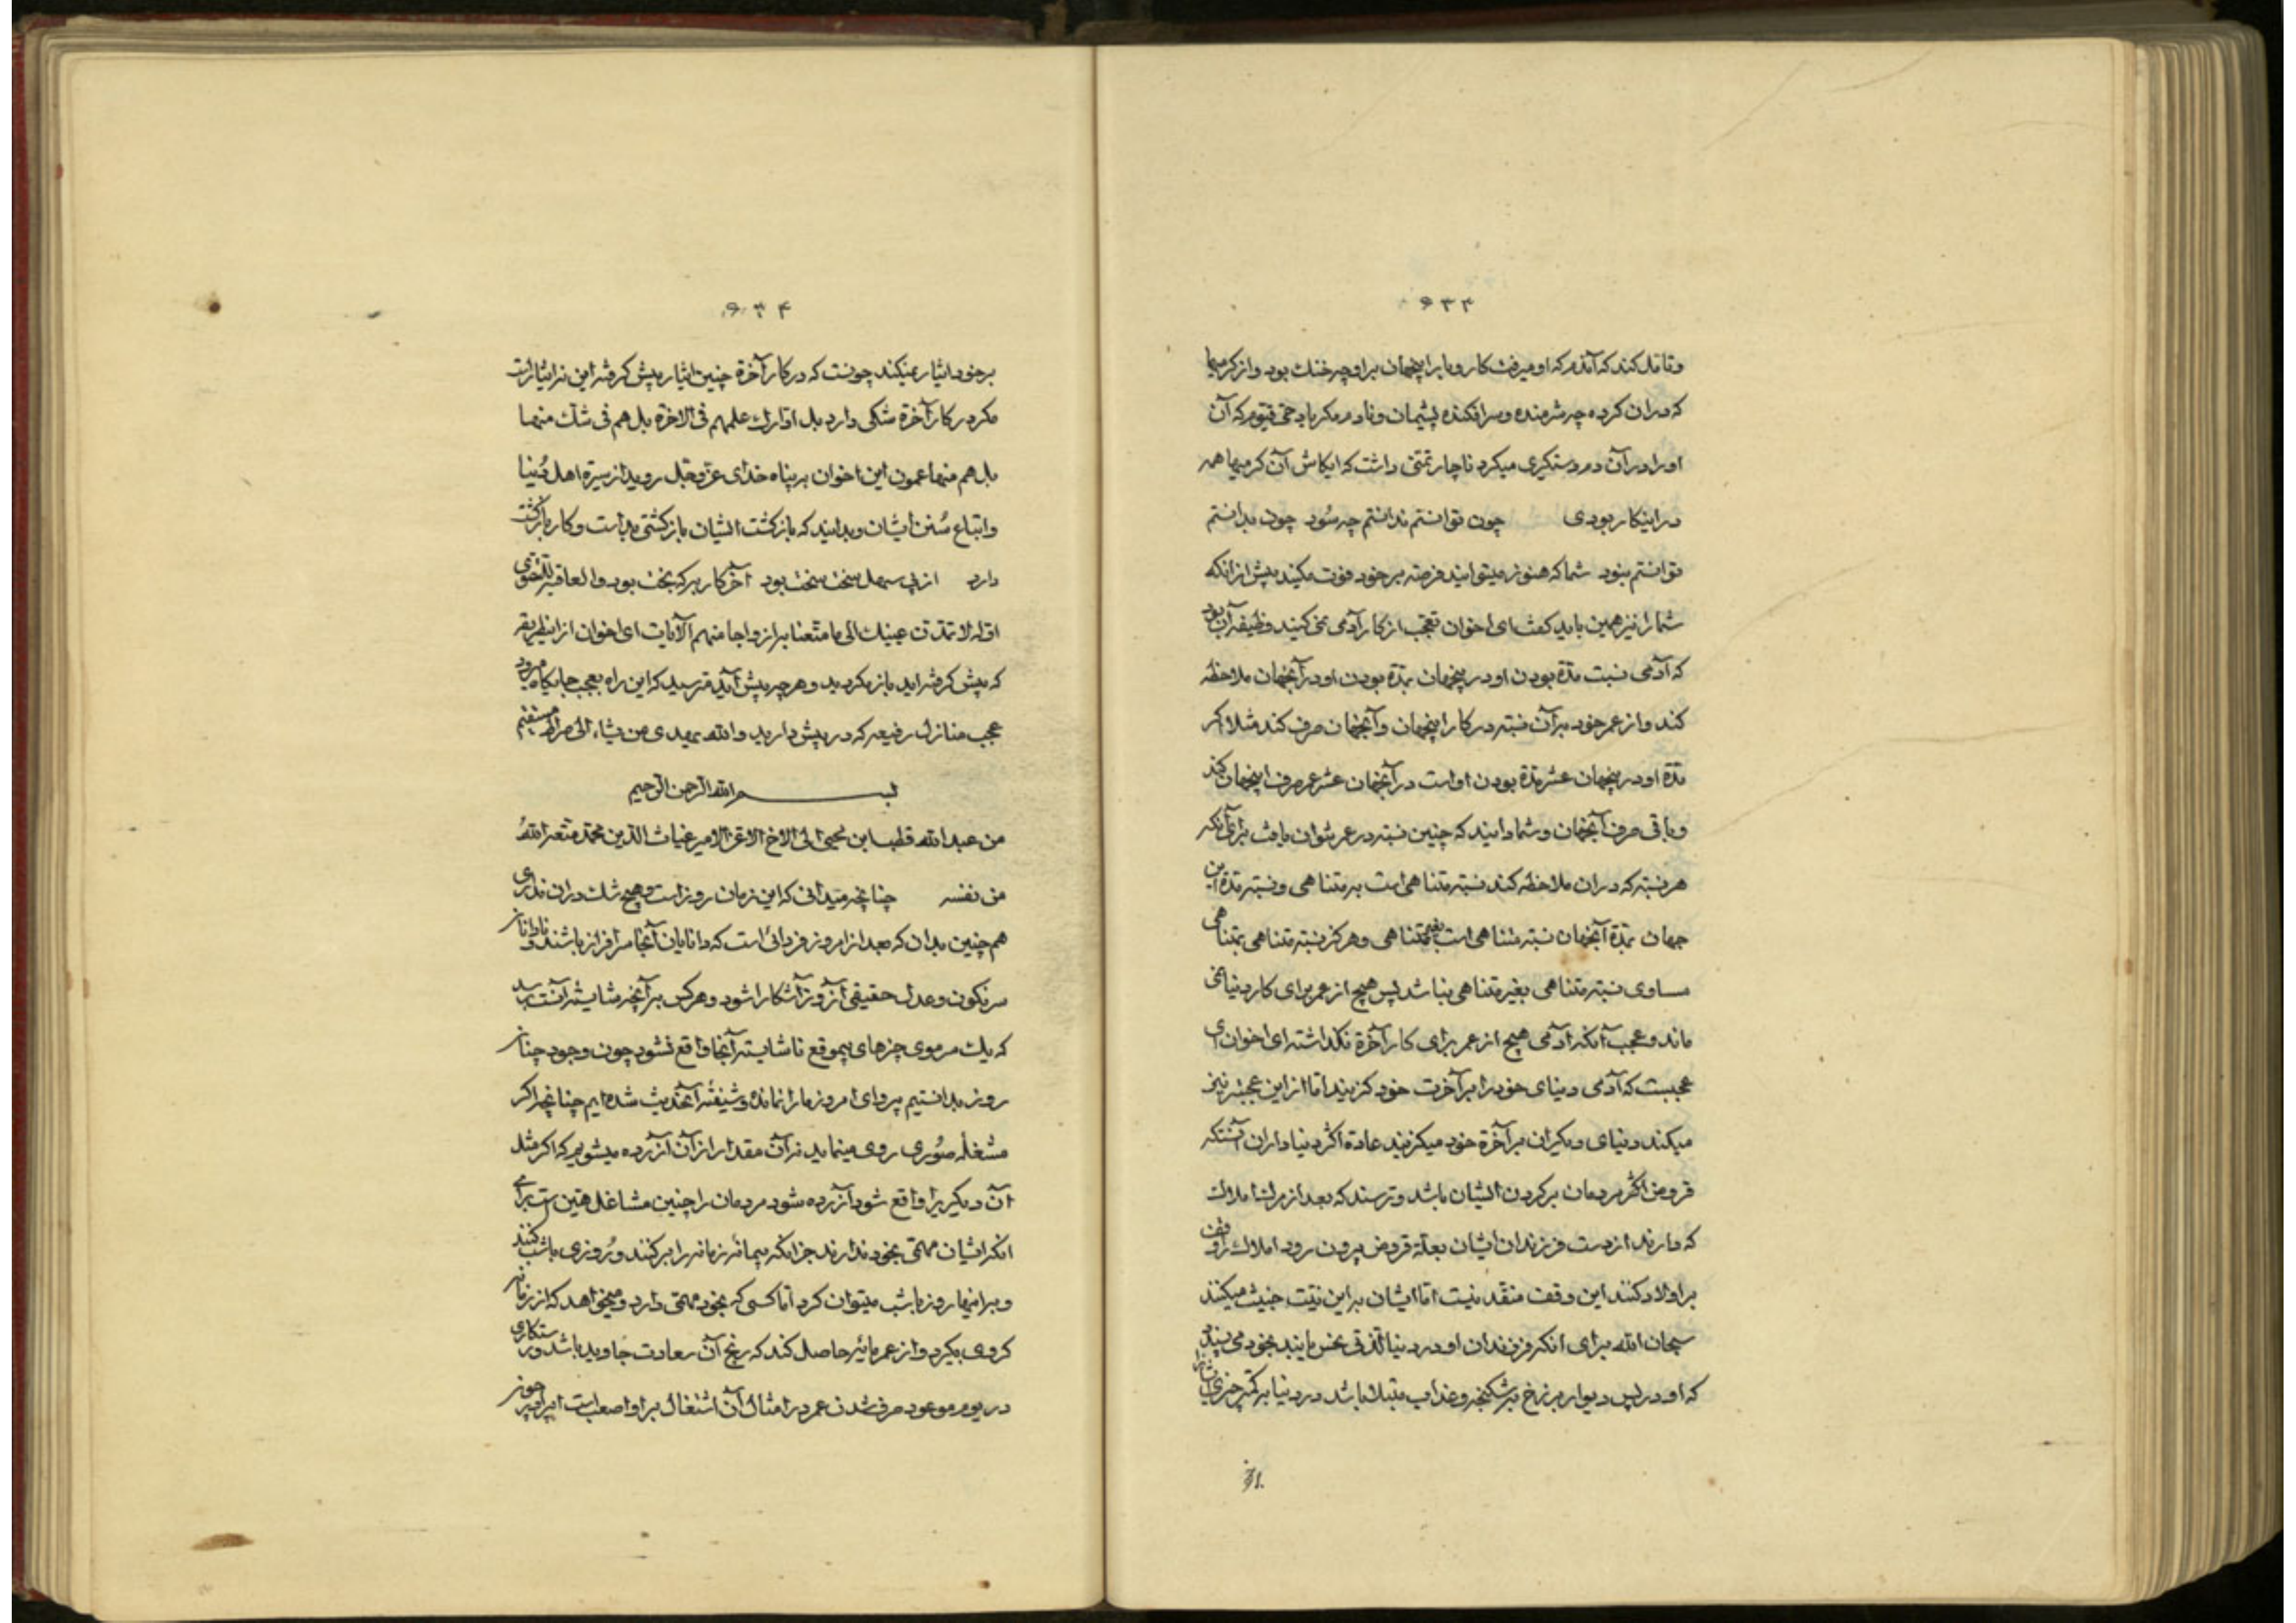 ۶۳۳
و تامل کند که آندم که او میرفت کار و بار اینجهان بر او چه خنك بود و از کرمیها
که در ان کرده چه شرمنده و سرافکنده پشیمان و نادم مکر یاد حی قیوم که آن
او را در آن دم دستکیری میکرد ناچار تمنی داشت که ایکاش آن کرمیها همه
در اینکار بودی چون توانستم ندانستم چه سُود چون بدانستم
توانستم نبود شما که هنوز میتوانید فرصة بر خود فوت مکنید پیش از انکه
شما را نیز همین باید کفت ای اخوان تعجب از کار آدمی نمی کنید وظیفه آن بود
که آدمی نسبت مدة بودن او در اینجهان بمدة بودن او در آنجهان ملاحظه
کند و از عمر خود بر آن نسبة در کار اینجهان و آنجهان صرف کند مثلا اکر
مدة او در اینجهان عشر مدة بودن او است در آنجهان عشر عمر صرف اینجهان کند
و باقی صرف آنجهان و شما دانید که چنین نسبة در عمر نتوان یافت برای آنکه
هر نسبة که در ان ملاحظه کند نسبة متناهی است به متناهی و نسبة مدة این
جهان بمدة آنجهان نسبة متناهی است بغیر متناهی و هرکز نسبة متناهی بمتناهی
مساوی نسبة متناهی بغیر متناهی نباشد پس هیچ از عمر برای کار دنیا نمی
ماند و عجب آنکه آدمی هیچ از عمر برای کار آخرة نکذاشته ای اخوان
عجبست که آدمی دنیای خود را بر آخرت خود کزیند اما از این عجبتر نیز
میکند دنیای دیکران بر آخرة خود میکزیند عادة اکثر دنیاداران آنستکه
قروض اکثر مردمان بر کردن ایشان باشد و ترسند که بعد از مرك املاك
که دارند از دست فرزندان ایشان بعلة قروض بیرون رود املاك را وقف
بر اولاد کنند این وقف منعقد نیست اما ایشان بر این نیت خبیث میکنند
سبحان الله برای انکه فرزندان او در دنیا لذتی خس یابند بخود می پسندد
که او در پس دیوار برزخ بشکنجه و عذاب مبتلا باشد در دنیا بر کمتر چیزی
۶۳۴
بر خود ایثار نمیکند چونست که در کار آخرة چنین ایثار پیش کرفته این نه ایثار است
مکر در کار آخرة شکی دارد بل ادارك علمهم فی الاخرة بل هم فی شك منها
بل هم منها عمون این اخوان به پناه خدای عز و جل روید از سیرة اهل دُنیا
و اتباع سُنن ایشان و بدانید که بازکشت ایشان بازکشتی بد است و کار بازکشت
دارد از پی سهل سخت سخت بود آخر کار هر که بخت بود و العاقبة للتقوی
اقله لا تمدن عینیك الی ما متعنا به ازواجا منهم الآیات ای اخوان از این طریقه
که پیش کرفته اید باز مکردید و هر چه پیش آید مترسید که این راه بعجب جایکاه میرود
عجب منازل رفیعه که در پیش دارید و الله یهدی من یشاء الی صراط مستقیم
بسم الله الرحمن الرحیم
من عبد الله قطب ابن یحیی الی الاخ الاعز الامیر غیاث الدین محمد متعه اللهُ
من نفسه چنانچه میدانی که این زمان روز است و هیچ شك در ان نداری
هم چنین بدان که بعد از امروز فردائی است که دانایان آنجا سرافراز باشند و نادانان
سرنکون و عدل حقیقی آن روز آشکارا شود و هر کس بر آنچه شایسته آنست برسد
که یك سر موی چیزهای بیموقع ناشایسته آنجا واقع نشود چون وجود چنان
روز بدانستیم پروای امروز ما را نمانده و شیفته آنحدیث شده ایم چنانچه اکر
مشغله صُوری روی مینماید نه آن مقدار از آن آزرده میشویم که اکر مثل
آن دیکریرا واقع شود آزرده شود مردمان را چنین مشاغل هین است برای
انکه ایشان مهمی بخود ندارند جز انکه پیمانه زمانه را پر کنند و رُوزی باشب کنند
و براینها روز باشب میتوان کرد اما کسی که بخود مهمی دارد و میخواهد که از زمانه
کروی بکیرد و از عمر مایه حاصل کند که ربح آن سعادت جاوید باشد و رستکاری
در یوم موعود صرف شدن عمر در امثال آن اشتغال بر او اصعب است